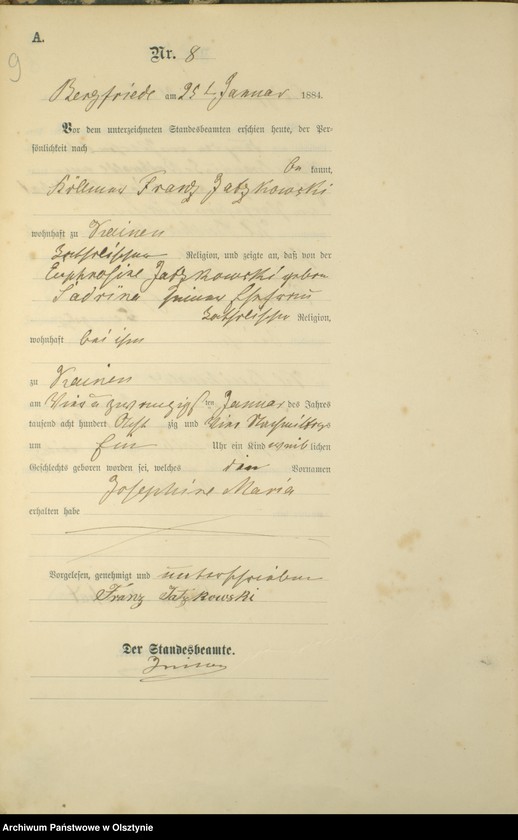 A.
9
Nr. 8
Bergfriede am 25t Januar 1884.
Vor dem unterzeichneten Standesbeamten erschien heute, der Per-
sönlichkeit nach
be kannt,
Köllmer Franz Jatzkowski
wohnhaft zu Kainen
katholischer Religion, und zeigte an, daß von der
Euphrosine Jatzkowski gebor
seiner Ehefrau
katholischer Religion,
wohnhaft bei ihm
zu Kainen
am Vier u zwanzigsten Januar des Jahres
tausend acht hundert Acht zig und Vier Nachmittags
um Ein Uhr ein Kind weib lichen
Geschlechts geboren worden sei, welches den Vornamen
Josephine Maria
erhalten habe
Vorgelesen, genehmigt und unterschrieben
Franz Jatzkowski
Der Standesbeamte.
Archiwum Państwowe w Olsztynie